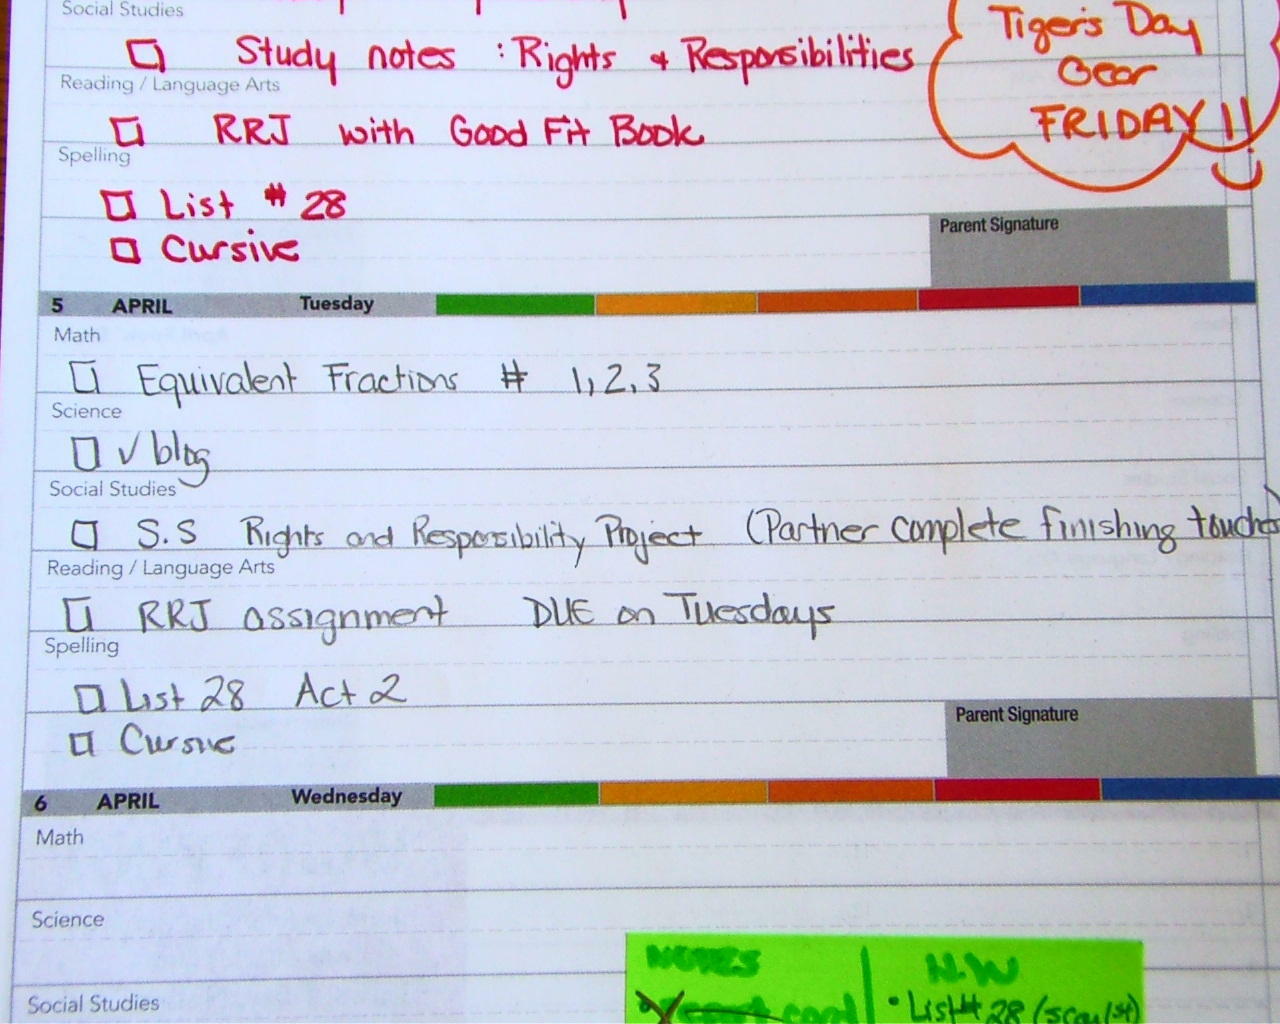 Social Studies
Study notes : Rights & Responsibilities
Reading / Language Arts
RRJ with Good Fit Book
Spelling
List # 28
Cursive
Tigers Day
Gear
FRIDAY !!
Parent Signature
5 APRIL Tuesday
Math
Equivalent Fractions # 1, 2, 3
Science
✓ blog
Social Studies
S.S Rights and Responsibility Project (Partner complete finishing touches)
Reading / Language Arts
RRJ assignment DUE on Tuesdays
Spelling
List 28 Act 2
Cursive
Parent Signature
6 APRIL Wednesday
Math
Science
Social Studies
NOTES
H.W
• List # 28